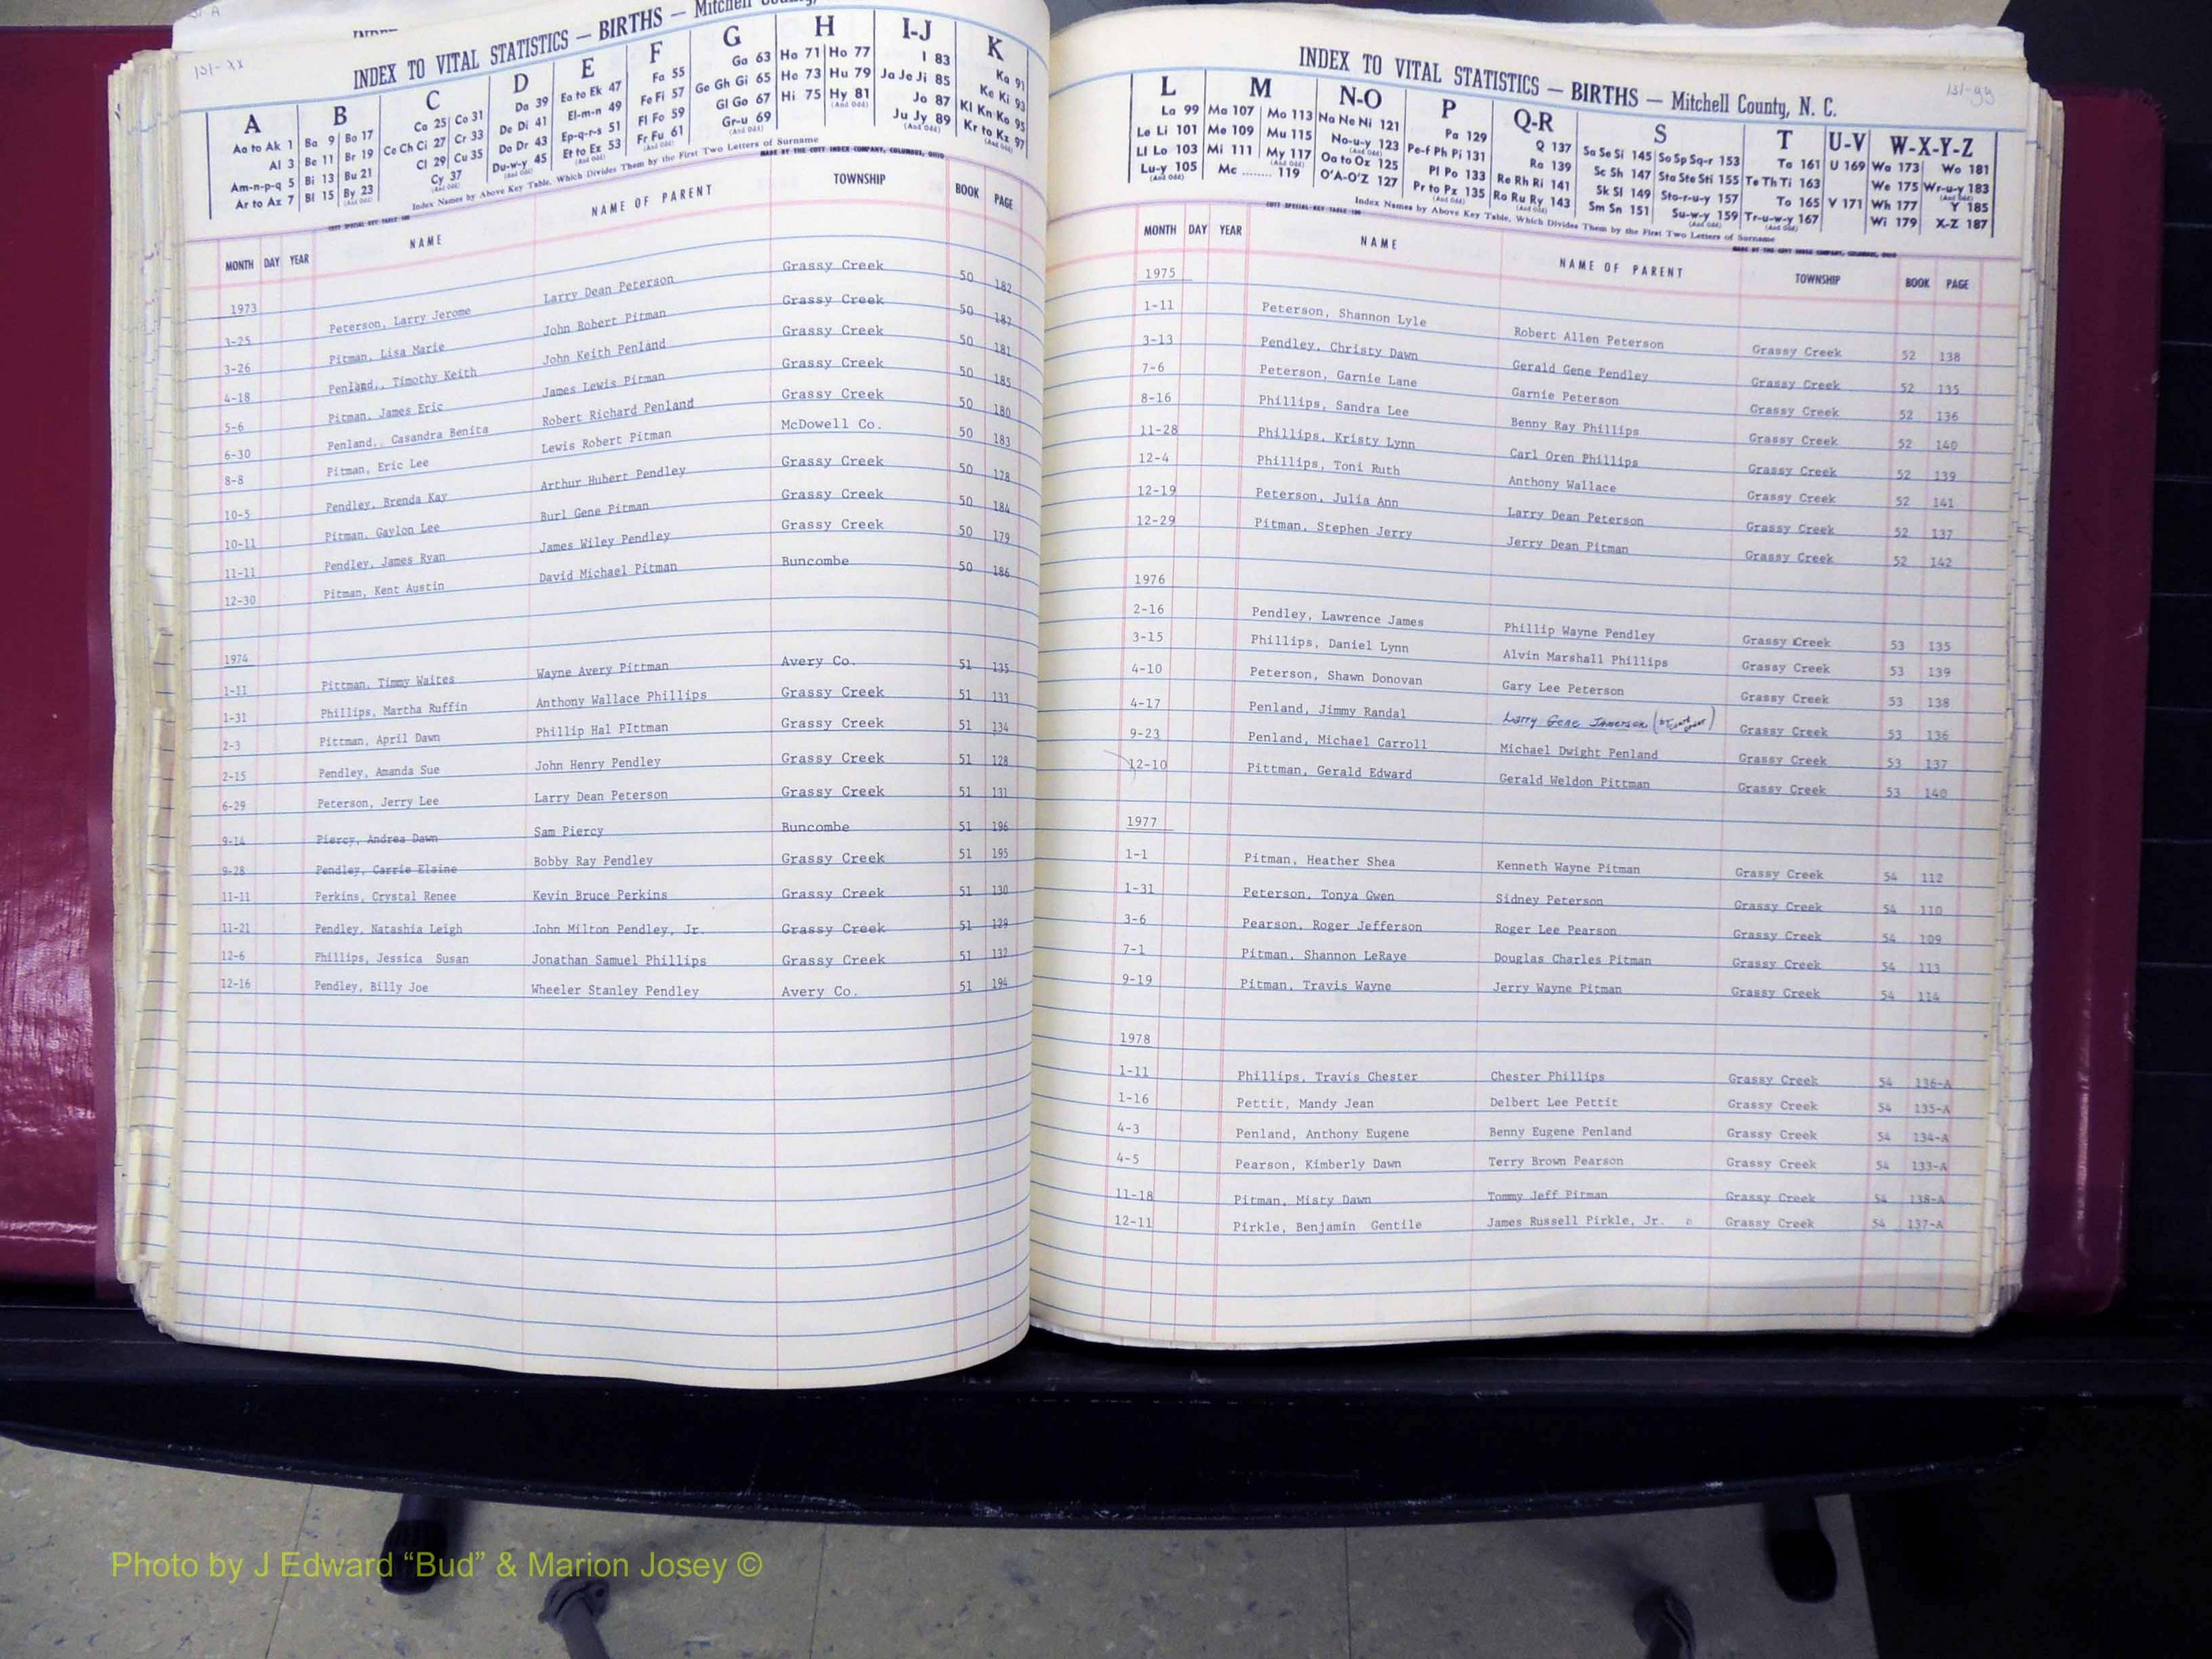 131-xx
INDEX TO VITAL STATISTICS — BIRTHS — Mitchell
A B C D E F G H I-J K
Aa to Ak 1 Ba 9 Bo 17 Ca 25 Co 31 Da 39 Ea to Ek 47 Fa 55 Ga 63 Ha 71 Ho 77 I 83 Ka 91
Al 3 Be 11 Br 19 Ce Ch Ci 27 Cr 33 De Di 41 El-m-n 49 Fe Fi 57 Ge Gh Gi 65 He 73 Hu 79 Ja Je Ji 85 Ke Ki 93
Am-n-p-q 5 Bi 13 Bu 21 Cl 29 Cu 35 Do Dr 43 Ep-q-r-s 51 Fl Fo 59 Gl Go 67 Hi 75 Hy 81 Jo 87 Kl Kn Ko 95
Ar to Az 7 Bl 15 By 23 Cy 37 Du-w-y 45 Et to Ez 53 Fr Fu 61 Gr-u 69 Ju Jy 89 Kr to Kz 97
Index Names by Above Key Table, Which Divides Them by the First Two Letters of Surname
MADE BY THE COTT INDEX COMPANY, COLUMBUS, OHIO
MONTH DAY YEAR NAME NAME OF PARENT TOWNSHIP BOOK PAGE
1973
3-25 Peterson, Larry Jerome Larry Dean Peterson Grassy Creek 50 182
3-26 Pitman, Lisa Marie John Robert Pitman Grassy Creek 50 187
4-18 Penland,, Timothy Keith John Keith Penland Grassy Creek 50 181
5-6 Pitman, James Eric James Lewis Pitman Grassy Creek 50 185
6-30 Penland,, Casandra Benita Robert Richard Penland Grassy Creek 50 180
8-8 Pitman, Eric Lee Lewis Robert Pitman McDowell Co. 50 183
10-5 Pendley, Brenda Kay Arthur Hubert Pendley Grassy Creek 50 178
10-11 Pitman, Gaylon Lee Burl Gene Pitman Grassy Creek 50 184
11-11 Pendley, James Ryan James Wiley Pendley Grassy Creek 50 179
12-30 Pitman, Kent Austin David Michael Pitman Buncombe 50 186
1974
1-11 Pittman, Timmy Waites Wayne Avery Pittman Avery Co. 51 135
1-31 Phillips, Martha Ruffin Anthony Wallace Phillips Grassy Creek 51 133
2-3 Pittman, April Dawn Phillip Hal PIttman Grassy Creek 51 134
2-15 Pendley, Amanda Sue John Henry Pendley Grassy Creek 51 128
6-29 Peterson, Jerry Lee Larry Dean Peterson Grassy Creek 51 131
9-14 Piercy, Andrea Dawn Sam Piercy Buncombe 51 196
9-28 Pendley, Carrie Elaine Bobby Ray Pendley Grassy Creek 51 195
11-11 Perkins, Crystal Renee Kevin Bruce Perkins Grassy Creek 51 130
11-21 Pendley, Natashia Leigh John Milton Pendley, Jr. Grassy Creek 51 129
12-6 Phillips, Jessica Susan Jonathan Samuel Phillips Grassy Creek 51 132
12-16 Pendley, Billy Joe Wheeler Stanley Pendley Avery Co. 51 194
131-yy
INDEX TO VITAL STATISTICS — BIRTHS — Mitchell County, N. C.
L M N-O P Q-R S T U-V W-X-Y-Z
La 99 Ma 107 Mo 113 Na Ne Ni 121 Pa 129 Q 137 Sa Se Si 145 So Sp Sq-r 153 Ta 161 U 169 Wa 173 Wo 181
Le Li 101 Me 109 Mu 115 No-u-y 123 Pe-f Ph Pi 131 Ra 139 Sc Sh 147 Sta Ste Sti 155 Te Th Ti 163 We 175 Wr-u-y 183
Ll Lo 103 Mi 111 My 117 Oa to Oz 125 Pl Po 133 Re Rh Ri 141 Sk Sl 149 Sto-r-u-y 157 To 165 V 171 Wh 177 Y 185
Lu-y 105 Mc ........ 119 O'A-O'Z 127 Pr to Pz 135 Ro Ru Ry 143 Sm Sn 151 Su-w-y 159 Tr-u-w-y 167 Wi 179 X-Z 187
Index Names by Above Key Table, Which Divides Them by the First Two Letters of Surname
MADE BY THE COTT INDEX COMPANY, COLUMBUS, OHIO
MONTH DAY YEAR NAME NAME OF PARENT TOWNSHIP BOOK PAGE
1975
1-11 Peterson, Shannon Lyle Robert Allen Peterson Grassy Creek 52 138
3-13 Pendley, Christy Dawn Gerald Gene Pendley Grassy Creek 52 135
7-6 Peterson, Garnie Lane Garnie Peterson Grassy Creek 52 136
8-16 Phillips, Sandra Lee Benny Ray Phillips Grassy Creek 52 140
11-28 Phillips, Kristy Lynn Carl Oren Phillips Grassy Creek 52 139
12-4 Phillips, Toni Ruth Anthony Wallace Grassy Creek 52 141
12-19 Peterson, Julia Ann Larry Dean Peterson Grassy Creek 52 137
12-29 Pitman, Stephen Jerry Jerry Dean Pitman Grassy Creek 52 142
1976
2-16 Pendley, Lawrence James Phillip Wayne Pendley Grassy Creek 53 135
3-15 Phillips, Daniel Lynn Alvin Marshall Phillips Grassy Creek 53 139
4-10 Peterson, Shawn Donovan Gary Lee Peterson Grassy Creek 53 138
4-17 Penland, Jimmy Randal Larry Gene Jamerson (by court order) Grassy Creek 53 136
9-23 Penland, Michael Carroll Michael Dwight Penland Grassy Creek 53 137
12-10 Pittman, Gerald Edward Gerald Weldon Pittman Grassy Creek 53 140
1977
1-1 Pitman, Heather Shea Kenneth Wayne Pitman Grassy Creek 54 112
1-31 Peterson, Tonya Gwen Sidney Peterson Grassy Creek 54 110
3-6 Pearson, Roger Jefferson Roger Lee Pearson Grassy Creek 54 109
7-1 Pitman, Shannon LeRaye Douglas Charles Pitman Grassy Creek 54 113
9-19 Pitman, Travis Wayne Jerry Wayne Pitman Grassy Creek 54 114
1978
1-11 Phillips, Travis Chester Chester Phillips Grassy Creek 54 136-A
1-16 Pettit, Mandy Jean Delbert Lee Pettit Grassy Creek 54 135-A
4-3 Penland, Anthony Eugene Benny Eugene Penland Grassy Creek 54 134-A
4-5 Pearson, Kimberly Dawn Terry Brown Pearson Grassy Creek 54 133-A
11-18 Pitman, Misty Dawn Tommy Jeff Pitman Grassy Creek 54 138-A
12-11 Pirkle, Benjamin Gentile James Russell Pirkle, Jr. Grassy Creek 54 137-A
Photo by J Edward “Bud” & Marion Josey ©